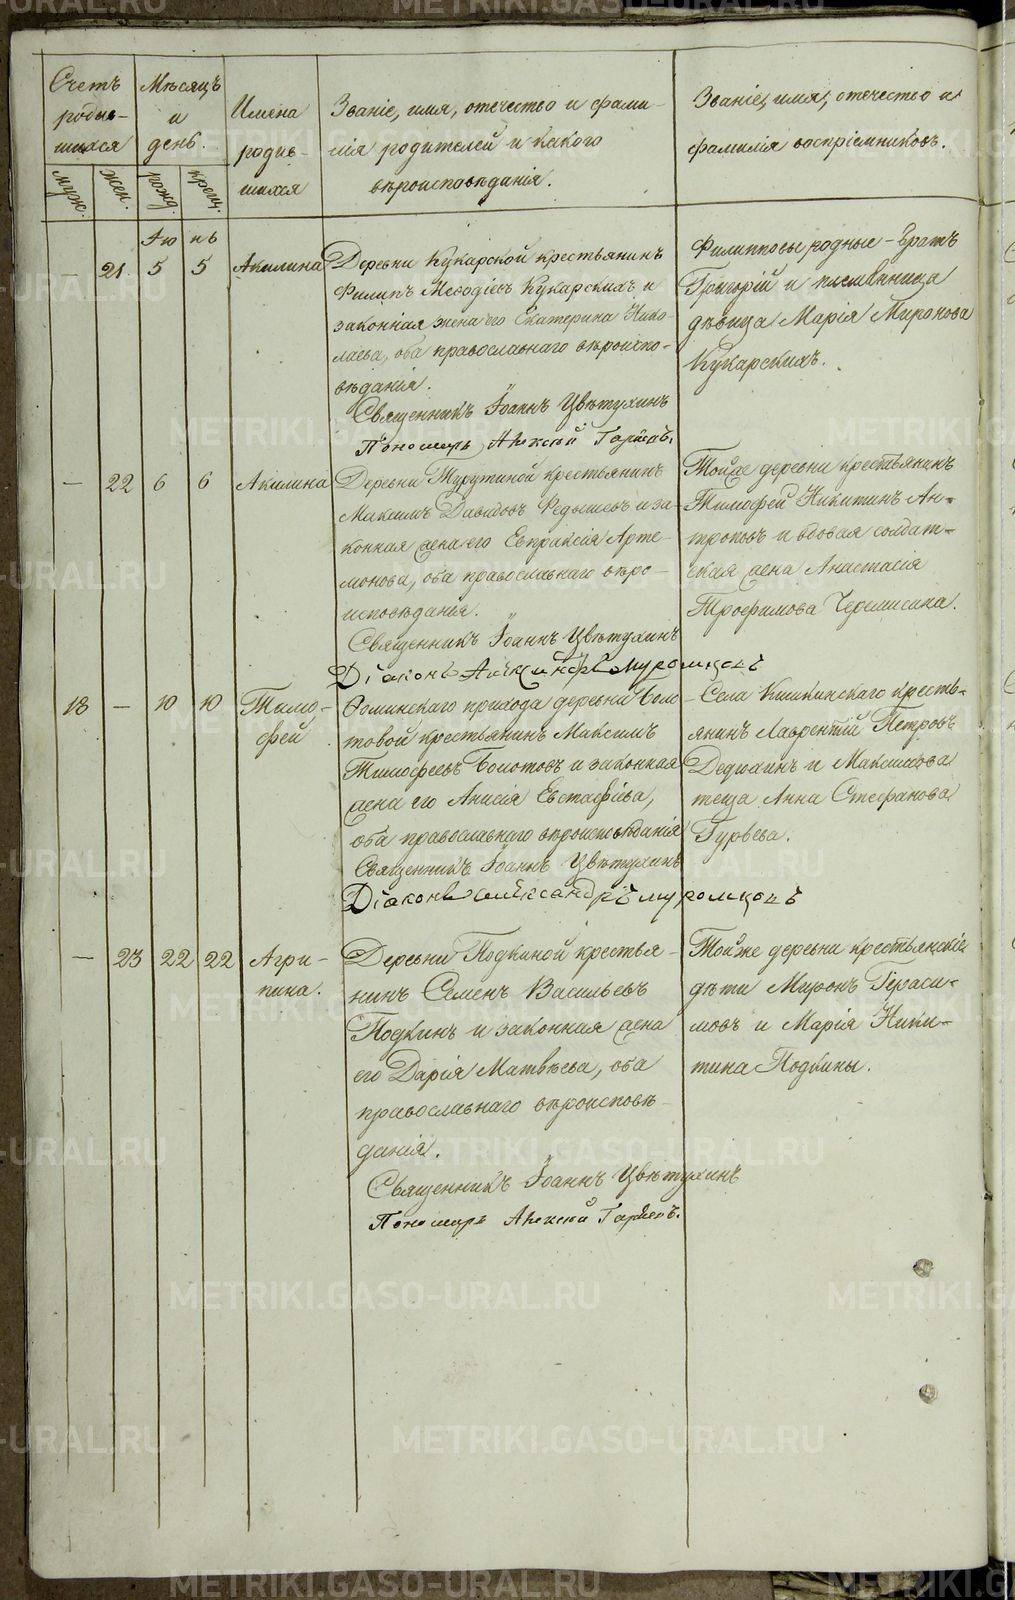 Счетъ родив-
шихся
Мѣсяцъ
и
день.
муж.
жен.
рожд.
крещ.
Имена
родив-
шихся
Званіе, имя, отечество и фами-
лія родителей и какого
вѣроисповѣданія.
Званіе, имя, отечество и
фамилія воспріемниковъ.
Іюнь
— 21 5 5 Акилина
Деревни Кукарской крестьянинъ
Филипъ Меѳодіевъ Кукарскихъ и
законная жена его Екатерина Нико-
лаева, оба православнаго вѣроиспо-
вѣданія.
Священникъ Іоаннъ Цвѣтухинъ
Пономарь Алексѣй
Филипповы родные – братъ
Григорій и племянница
дѣвица Марія Миронова
Кукарскихъ.
— 22 6 6 Акилина
Деревни Турутиной крестьянинъ
Максимъ Давидовъ Федышевъ и за-
конная жена его Евпраксія Арте-
монова, оба православнаго вѣро-
исповѣданія.
Священникъ Іоаннъ Цвѣтухинъ
Діаконъ Александръ Муромцовъ
Тойже деревни крестьянинъ
Тимофей Никитинъ Ан-
троповъ и вдовая солдат-
ская жена Анастасія
Трофимова Черемисина.
18 — 10 10 Тимо-
фей
Фоминскаго прихода деревни Боло-
товой крестьянинъ Максимъ
Тимофеевъ Болотовъ и законная
жена его Анисія Евстафіева,
оба православнаго вѣроисповѣданія
Священникъ Іоаннъ Цвѣтухинъ
Діаконъ Александръ Муромцовъ
Села Кишкинскаго кресть-
янинъ Лаврентій Петровъ
Дедюхинъ и Максимова
теща Анна Стефанова
Гурвева.
— 23 22 22 Агри-
пина.
Деревни Подкиной крестья-
нинъ Семенъ Васильевъ
Подкинъ и законная жена
его Дарія Матвѣева, оба
православнаго вѣроисповѣ-
данія.
Священникъ Іоаннъ Цвѣтухинъ
Пономарь Алексѣй
Тойже деревни крестьянскіе
дѣти Миронъ Гераси-
мовъ и Марія Ники-
тина Подкины.
METRIKI.GASO-URAL.RU